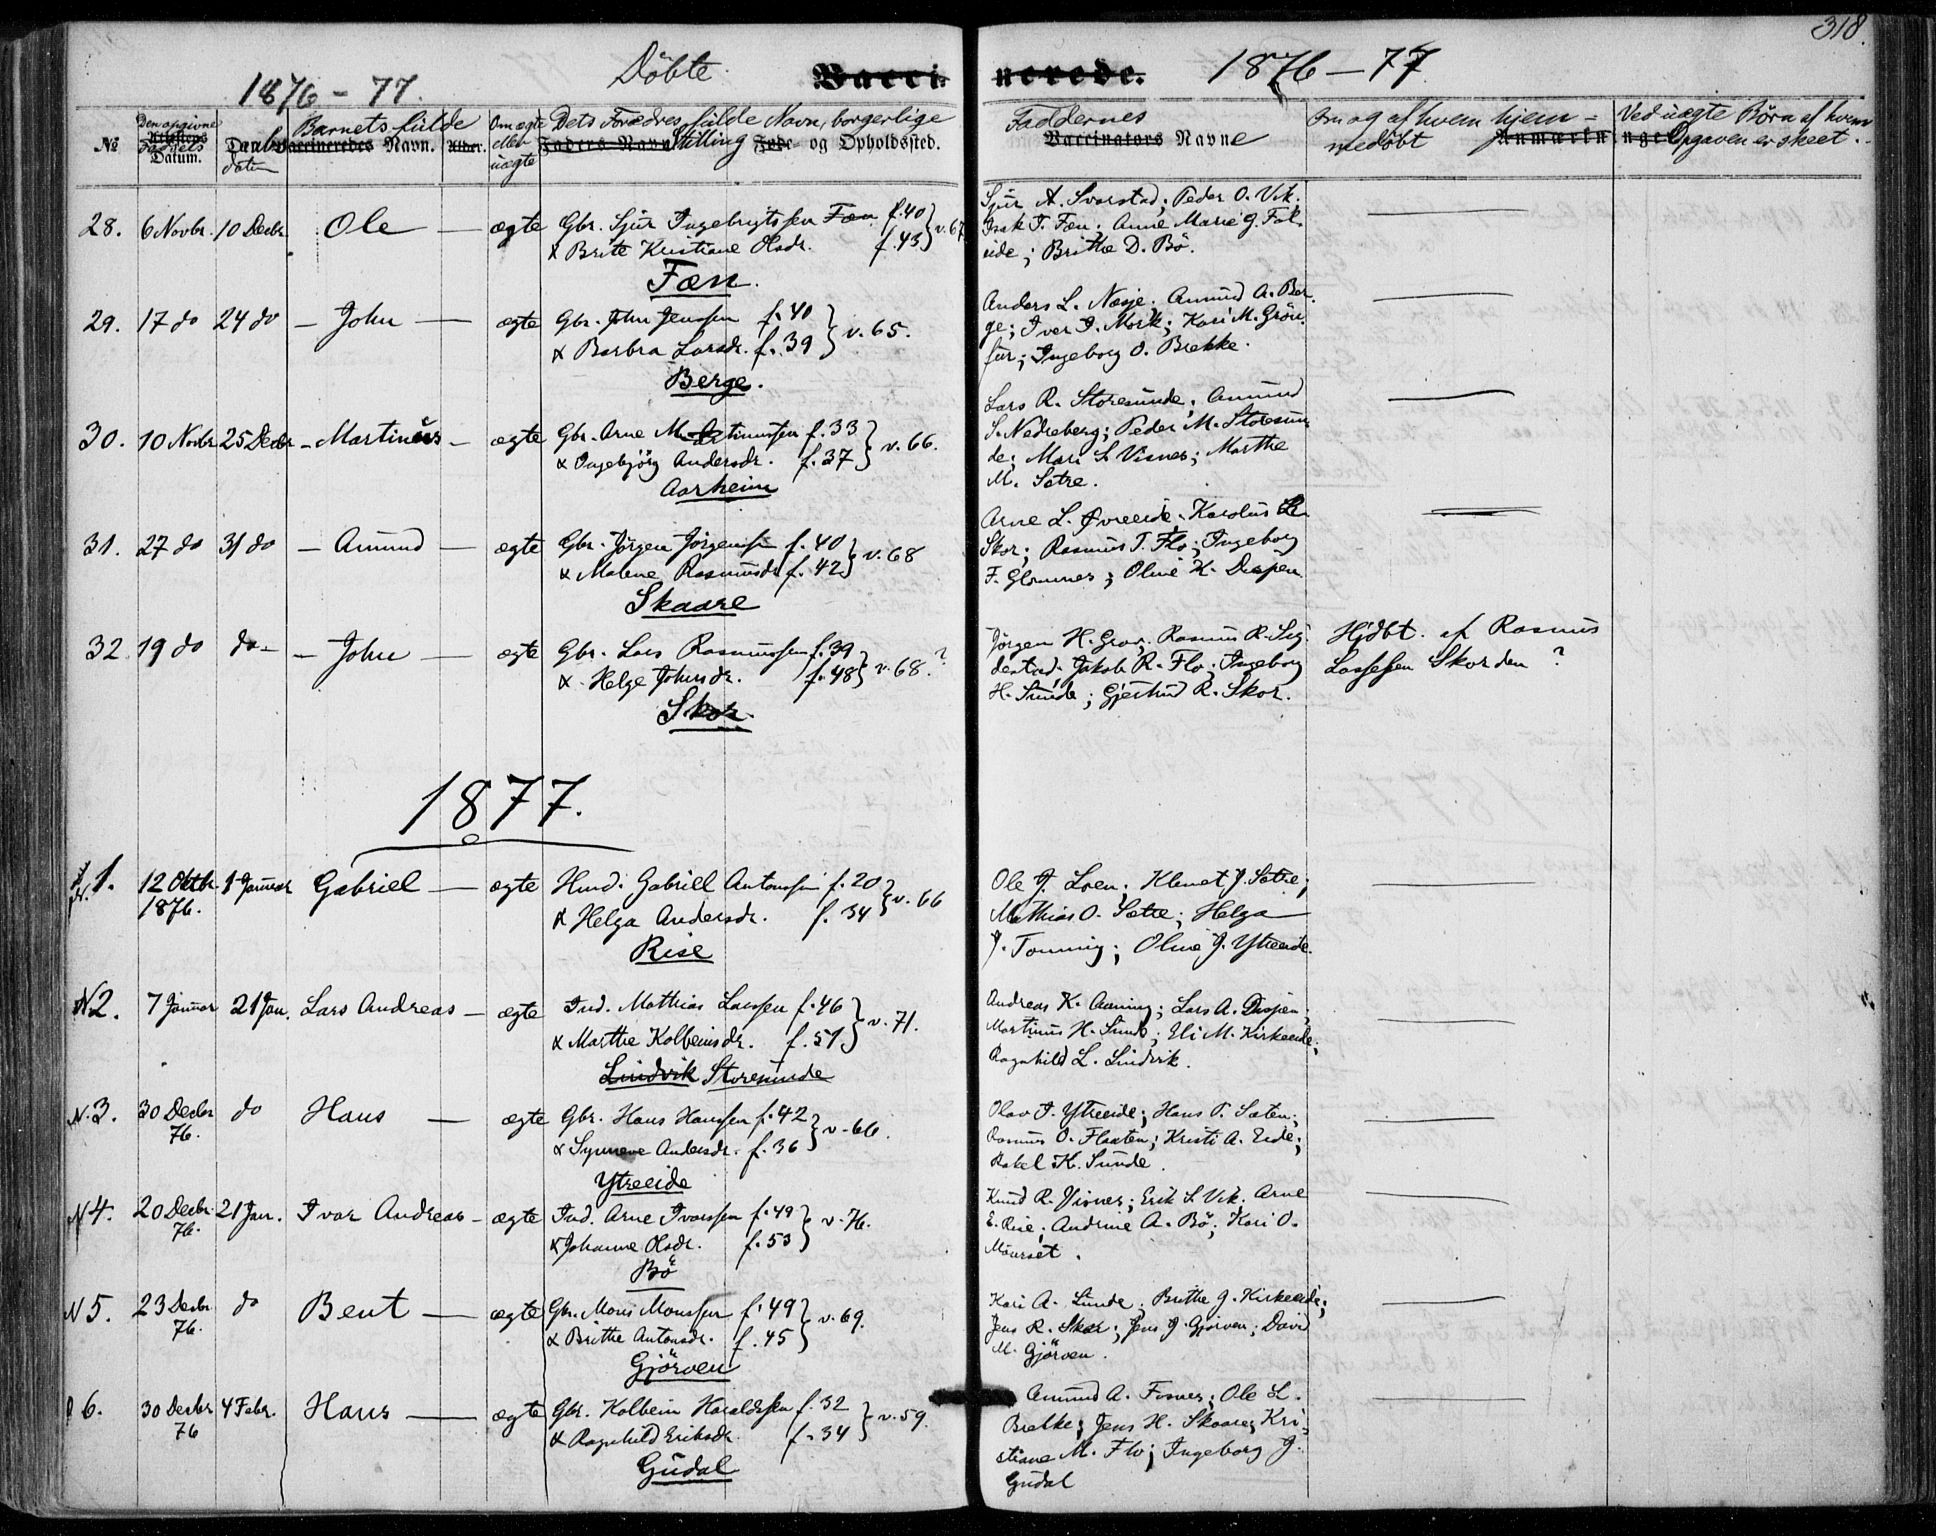 318.
1876 - 77. Döbte Vacci- nerede. 1876 - 77
№
Den opgivne Attestens Fødsels Datum.
Daabs datum
Barnets fulde Vaccineredes Navn.
Alder.
Om ægte eller uægte
Dets Forældres fulde Navn, borgerlige
Faders Navn Stilling Føde og Opholdssted.
Faddernes
Vaccinators Navne
Om og af hvem hjem-
medøbt
Anmærkninger
Ved uægte Börn af hvem
Opgaven er skeet.
28. 6 Novbr. 10 Decbr Ole — ægte Gbr. Sjur Ingebrigtsen Fæn f. 40
& Brite Kristiane Olsdr. f. 43 } v. 67
Fæn.
Sjur A. Svorstad; Peder O. Vik;
Isak T. Fæn; Anne Marie G. Fol-
eide; Brithe D. Bö.
29. 17 do 24 do — John — ægte Gbr. John Jenssen f. 40
& Barbra Larsdr. f. 39 } v. 65.
Berge.
Anders L. Nesje. Amund A. Ber-
ge; Iver I. Mork; Kari M. Grön-
fur; Ingeborg O. Brekke.
30. 10 Novbr 25 Decbr — Martinus — ægte Gbr. Arne Martinussen f. 33
& Ingebjörg Andersdr. f. 37 } v. 66.
Aarheim
Lars R. Storesunde; Amund
S. Nedreberg; Peder M. Storesun-
de; Mari S. Visnes; Marthe
M. Sætre.
31. 27 do 31 do — Amund — ægte Gbr. Jörgen Jörgensen f. 40
& Malene Rasmusdr f. 42 } v. 68
Skaare
Arne L. Øvreeide. Karolus R
Skor; Rasmus T. Flo; Ingeborg
F. Glomnes; Oline K. Dispen
32. 19 do do — John — ægte Gbr. Lars Rasmussen f. 39
& Helge Johnsdr. f. 48 } v. 68. ?
Skor.
Jörgen H. Grov; Rasmus R. Seg-
destad; Jakob R. Flo; Ingeborg
H. Sunde; Gjertrud R. Skor.
Hjdbt. af Rasmus
Lassesen Skorden ?
1877.
N. 1. 12 Oktbr. 1 Januar Gabriel — ægte Husd. Gabriel Antonssen f. 20
1876. & Helga Andersdr. f. 34 } v. 66
Rise
Ole J. Loen; Klemet J. Sætre;
Mathias O. Sætre; Helga
J. Tonning; Oline J. Ytreeide.
N 2. 7 Januar 21 Jan. Lars Andreas — ægte Ind. Mathias Larssen f. 46
& Marthe Kolbeinsdr. f. 51 } v. 71.
Lindvik Storesunde
Andreas K. Aaning; Lars A. Dispen;
Martinus H. Sunde; Eli M. Kirkeeide;
Ragnhild L. Lindvik.
N. 3. 30 Decbr do Hans — ægte Gbr. Hans Hanssen f. 42
76. & Synneve Andersdr. f. 36 } v. 66.
Ytreeide
Olav I. Ytreeide; Hans T. Sæten;
Rasmus O. Flaaten; Kristi A. Eide;
Rakel H. Sunde.
N 4. 20 Decbr. 21 Jan. Ivar Andreas — ægte Ind. Arne Ivarssen f. 49
76. & Johanne Olsdr. f. 53 } v. 76.
Bö
Knud R. Visnes; Erik S. Vik. Arne
E. Rise; Andrine A. Bö; Kari O.
Maurset.
N 5. 23 Decbr do Bent — ægte Gbr. Mons Monssen f. 49
76. & Brithe Antonsdr. f. 45 } v. 69.
Gjörven
Kari A. Sunde; Brithe J. Kirkeeide;
Jens R. Skor; Jens J. Gjörven; David
M. Gjörven.
6. 30 Decbr 4 Febr. Hans — ægte Gbr. Kolbein Haraldssen f. 32
76 & Ragnhild Eriksdr. f. 34 } v. 59.
Gudal
Amund A. Fosnes; Ole L.
Brekke; Jens H. Skaare; Kri-
stiane M. Flo; Ingeborg J.
Gudal